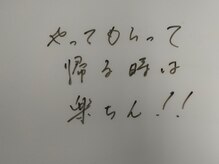 やってもらって
帰る時は
楽ちん!!